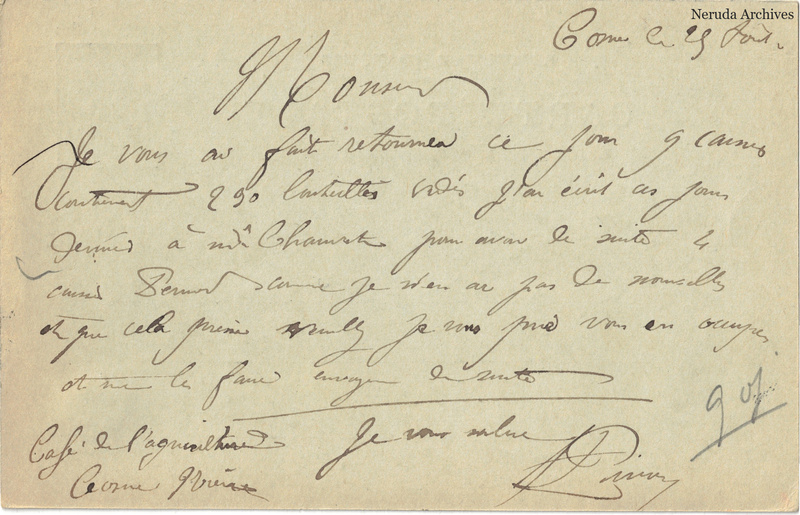 Neruda Archives
Cosne le 25 Août
Monsieur
Je vous ai fait retourner ce jour 9 caisses
contenant 290 bouteilles vides J'ai écrit ces jours
derniers à Mr pour avoir de suite 4
caisses Pernod comme je n'en ai pas de nouvelles
et que cela presse je vous prie vous en occuper
et me les faire envoyer de suite
Je vous salue
Café de l'agriculture
Cosne Nièvre